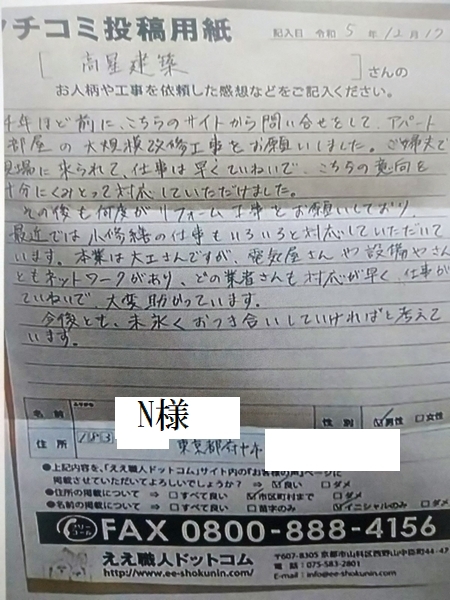 チコミ投稿用紙
記入日 令和 5 年 12 月 17
[ 高星建築 ] さんの
お人柄や工事を依頼した感想などをご記入ください。
年ほど前に、こちらのサイトから問い合せをして、アパート
部屋の大規模改修工事をお願いしました。ご夫婦で
現場に来られて、仕事は早くていねいで、こちらの意向を
十分にくみとって対応していただけました。
その後も何度かリフォーム工事をお願いしており、
最近では小修繕の仕事もいろいろと対応していただいて
います。本業は大工さんですが、電気屋さんや設備やさん
ともネットワークがあり、どの業者さんも対応が早く、仕事が
ていねいで大変助かっています。
今後とも、末永くおつき合いしていければと考えて
います。
ふりがな
名前 N様 性別 ☑男性 □女性
住所 183 東京都府中市
●上記内容を、「ええ職人ドットコム」サイト内の「お客様の声」ページに
掲載させていただいてよろしいでしょうか? ⇒ ☑良い □ダメ
●住所の掲載について ⇒ □すべて良い ☑市区町村まで □ダメ
●名前の掲載について ⇒ □すべて良い □苗字のみ ☑イニシャルのみ □ダメ
フリーコール FAX 0800-888-4156
ええ職人ドットコム
http://www.ee-shokunin.com/
〒607-8305 京都市山科区西野山中臣町44-47
電話:075-583-2801
E-mail:info@ee-shokunin.com